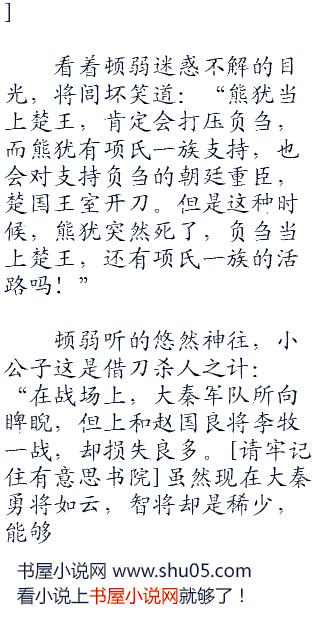 ]
看着顿弱迷惑不解的目
光，将闾坏笑道：“熊犹当
上楚王，肯定会打压负刍，
而熊犹有项氏一族支持，也
会对支持负刍的朝廷重臣，
楚国王室开刀。但是这种时
候，熊犹突然死了，负刍当
上楚王，还有项氏一族的活
路吗！”
顿弱听的悠然神往，小
公子这是借刀杀人之计：
“在战场上，大秦军队所向
睥睨，但上和赵国良将李牧
一战，却损失良多。[请牢记
住有意思书院]虽然现在大秦
勇将如云，智将却是稀少，
能够
书屋小说网 www.shu05.com
看小说上书屋小说网就够了！